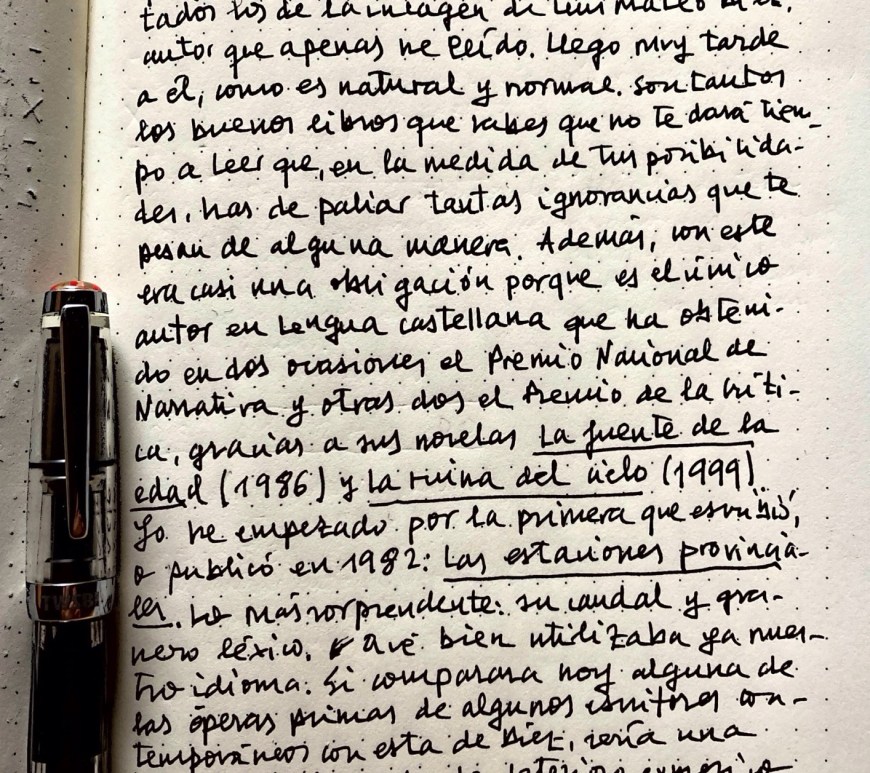 tados los de la imagen de Luis Mateo Díez,
autor que apenas he leído. Llego muy tarde
a él, como es natural y normal. Son tantos
los buenos libros que sabes que no te dará tiem-
po a leer que, en la medida de tus posibilida-
des, has de paliar tantas ignorancias que te
pesan de alguna manera. Además, con este
era casi una obligación porque es el único
autor en lengua castellana que ha obteni-
do en dos ocasiones el Premio Nacional de
Narrativa y otras dos el Premio de la Críti-
ca, gracias a sus novelas La fuente de la
edad (1986) y La ruina del cielo (1999).
Yo he empezado por la primera que escribió,
o publicó en 1982: Las estaciones provincia-
les. Lo más sorprendente: su caudal y gra-
nero léxico. Qué bien utilizaba ya nues-
tro idioma. Si comparara hoy alguna de
las óperas primas de algunos escritores con-
temporáneos con esta de Díez, sería una